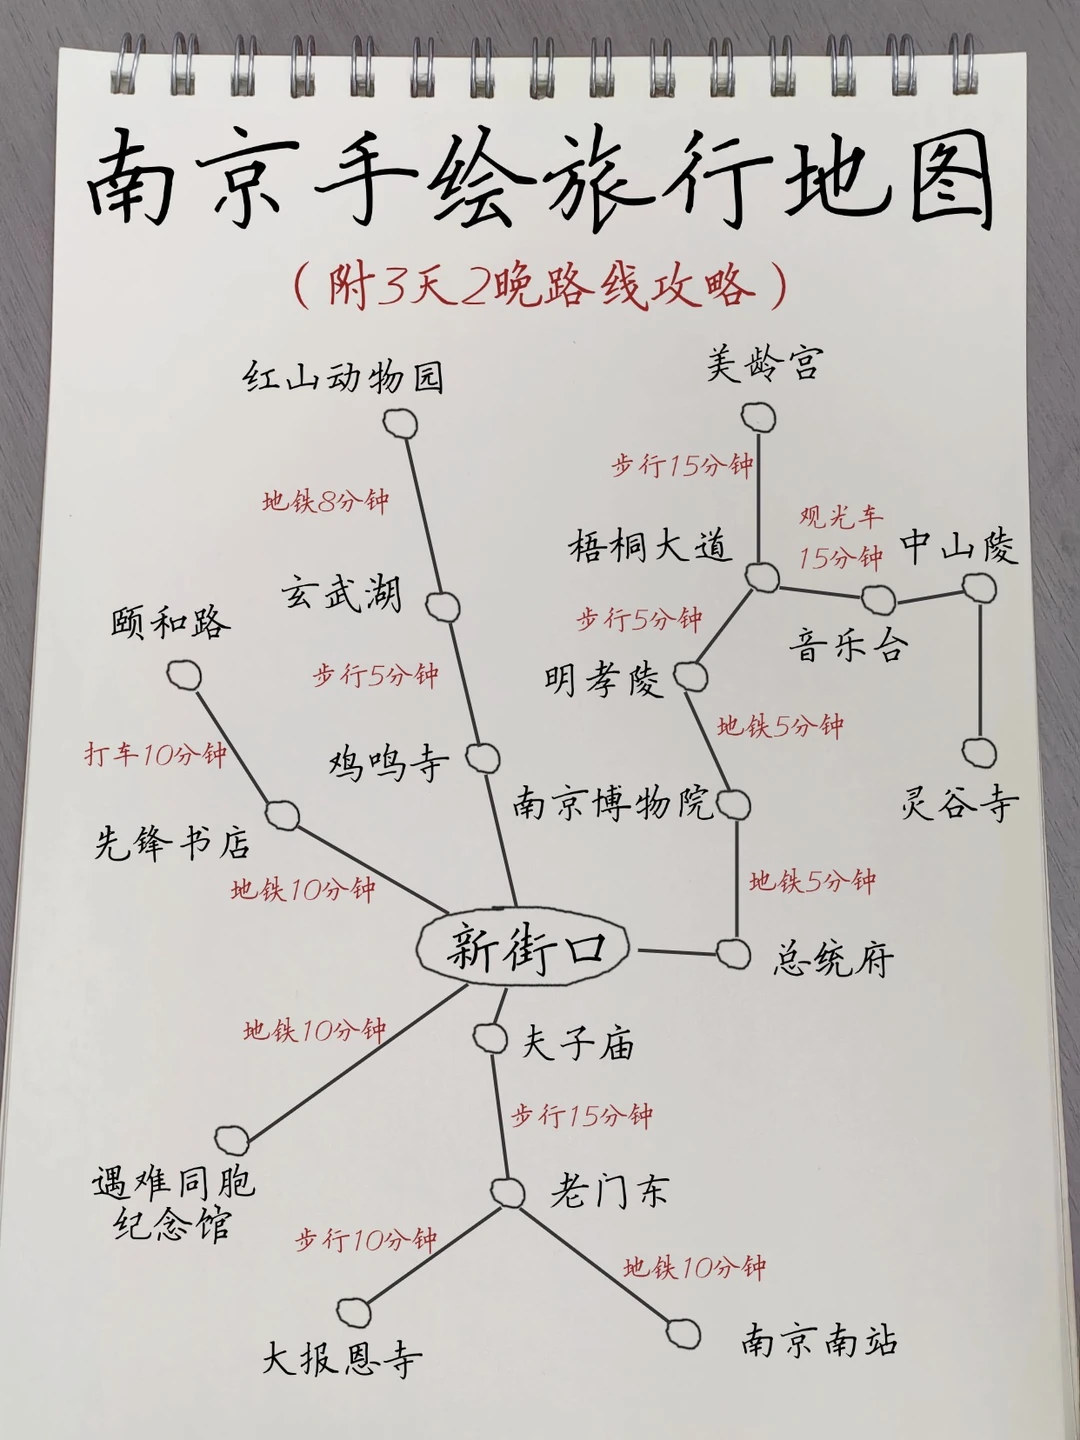 南京手绘旅行地图
（附3天2晚路线攻略）
美龄宫
红山动物园
步行15分钟
地铁8分钟
观光车
15分钟
梧桐大道
中山陵
玄武湖
颐和路
步行5分钟
音乐台
步行5分钟
明孝陵
地铁5分钟
打车10分钟
鸡鸣寺
南京博物院
灵谷寺
先锋书店
地铁10分钟
地铁5分钟
新街口
总统府
地铁10分钟
夫子庙
步行15分钟
遇难同胞
纪念馆
老门东
步行10分钟
地铁10分钟
南京南站
大报恩寺